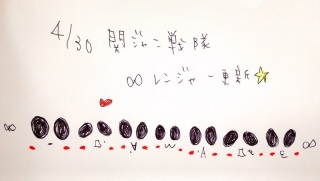 4/30 関ジャニ戦隊
∞レンジャー更新☆
∞ ∞